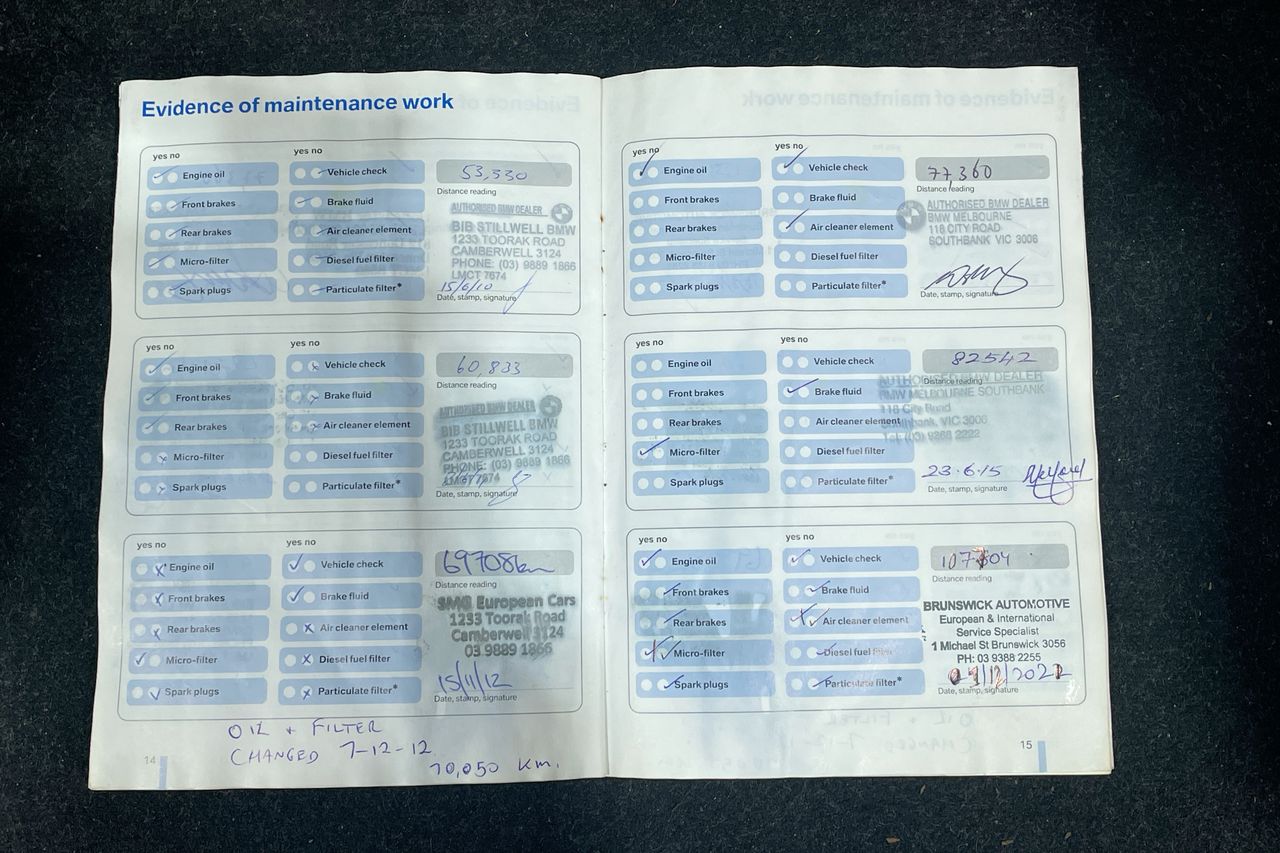 Evidence of maintenance work
yes no
yes no
Engine oil
Vehicle check
53,330
Distance reading
Front brakes
Brake fluid
AUTHORISED BMW DEALER
BIB STILLWELL BMW
Rear brakes
Air cleaner element
1233 TOORAK ROAD
CAMBERWELL 3124
Micro-filter
Diesel fuel filter
PHONE: (03) 9889 1866
LMCT 7674
Spark plugs
Particulate filter*
15/6/10
Date, stamp, signature
yes no
yes no
Engine oil
Vehicle check
60,833
Distance reading
Front brakes
Brake fluid
AUTHORISED BMW DEALER
BIB STILLWELL BMW
Rear brakes
Air cleaner element
1233 TOORAK ROAD
CAMBERWELL 3124
Micro-filter
Diesel fuel filter
PHONE: (03) 9889 1866
LMCT 7674
Spark plugs
Particulate filter*
Date, stamp, signature
yes no
yes no
Engine oil
Vehicle check
69708km
Distance reading
Front brakes
Brake fluid
SMG European Cars
1233 Toorak Road
Rear brakes
Air cleaner element
Camberwell 3124
03 9889 1866
Micro-filter
Diesel fuel filter
Spark plugs
Particulate filter*
15/11/12
Date, stamp, signature
OIL + FILTER
CHANGED 7-12-12
70,050 Km.
14
yes no
yes no
Engine oil
Vehicle check
77,360
Distance reading
Front brakes
Brake fluid
AUTHORISED BMW DEALER
BMW MELBOURNE
Rear brakes
Air cleaner element
118 CITY ROAD
SOUTHBANK VIC 3006
Micro-filter
Diesel fuel filter
Spark plugs
Particulate filter*
Date, stamp, signature
yes no
yes no
Engine oil
Vehicle check
82542
Distance reading
Front brakes
Brake fluid
AUTHORISED BMW DEALER
BMW MELBOURNE SOUTHBANK
118 City Road
Rear brakes
Air cleaner element
Southbank, VIC 3006
Tel: (03) 9268 2222
Micro-filter
Diesel fuel filter
Spark plugs
Particulate filter*
23·6·15
Date, stamp, signature
yes no
yes no
Engine oil
Vehicle check
Distance reading
Front brakes
Brake fluid
BRUNSWICK AUTOMOTIVE
European & International
Rear brakes
Air cleaner element
Service Specialist
1 Michael St Brunswick 3056
Micro-filter
Diesel fuel filter
PH: 03 9388 2255
Spark plugs
Particulate filter*
Date, stamp, signature
15